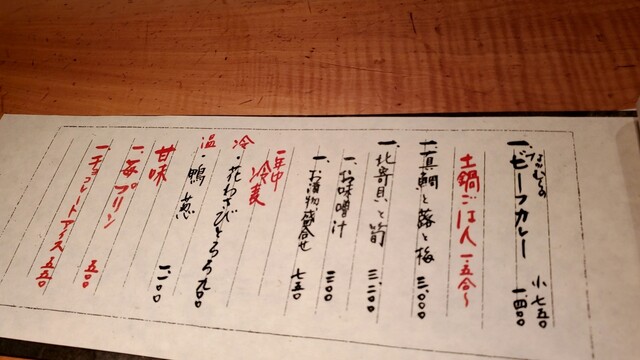 一、ビーフカレー 小 七五〇
一、四〇〇
土鍋ごはん 一、五合〜
一、真鯛と蕗と梅 三、〇〇〇
一、北寄貝と筍 三、二〇〇
一、お味噌汁 三〇〇
一、お漬物盛合せ 七五〇
年中
冷麦
冷・花わさびとろろ 九〇〇
温・鴨葱
甘味
一、苺プリン 五〇〇
一、チョコレートアイス 五五〇